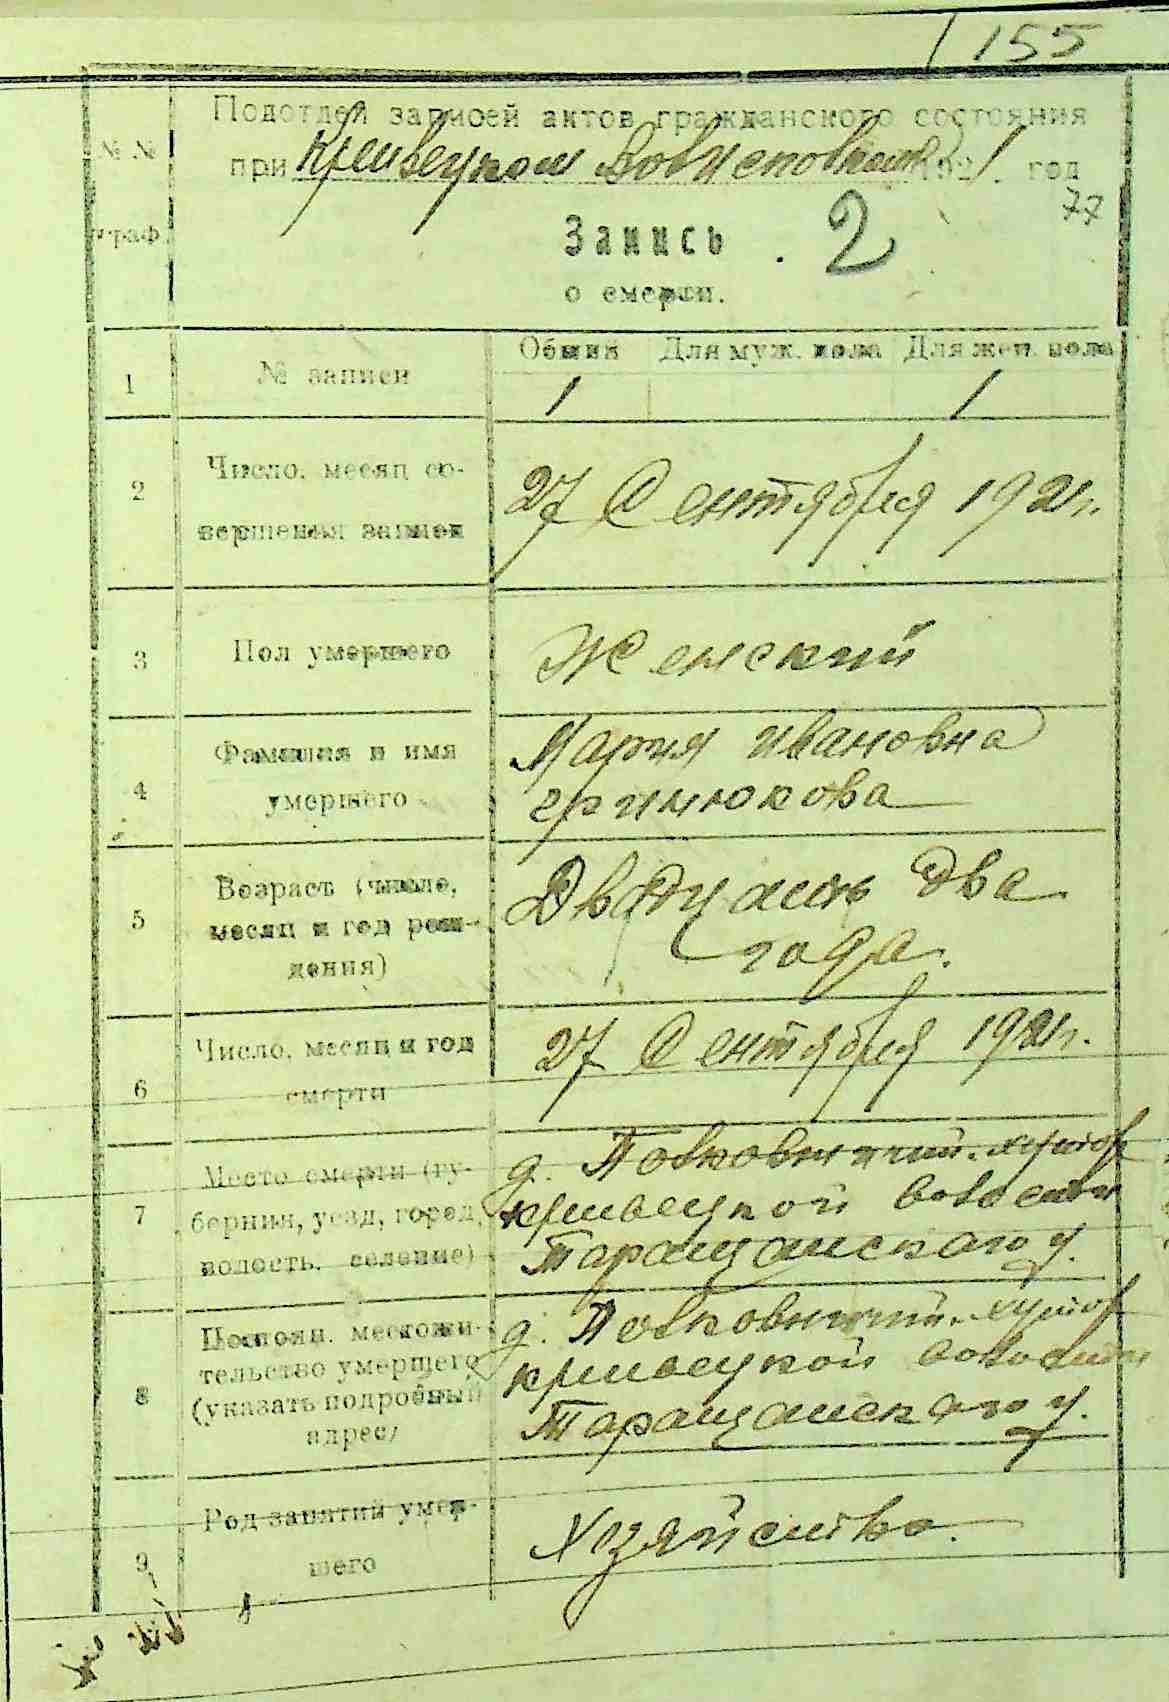 155
Подотдел записей актов гражданского состояния
при Кривецком Волисполкоме 1921 год
77
№№ граф.
Запись 2
о смерти.
Общий Для муж. пола Для жен. пола
1 № записи 1 1
2 Число, месяц со-
вершения записи
27 Сентября 1921 г.
3 Пол умершего Женский
4 Фамилия и имя
умершего
Мария Ивановна
5 Возраст (число,
месяц и год рож-
дения)
Двадцать два
года.
6 Число, месяц и год
смерти
27 Сентября 1921 г.
7 Место смерти (гу-
берния, уезд, город,
волость, селение)
д. хутор
кривецкой волости
Таращанского у.
8 Постоян. местожи-
тельство умершего
(указать подробный
адрес)
д. хутор
кривецкой волости
Таращанского у.
9 Род занятий умер-
шего
Хозяйство.